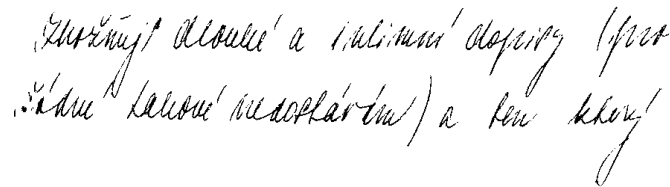 zbožňuji dlouhé a intimní dopisy (pro
žádné takové nedostávám) a ten který